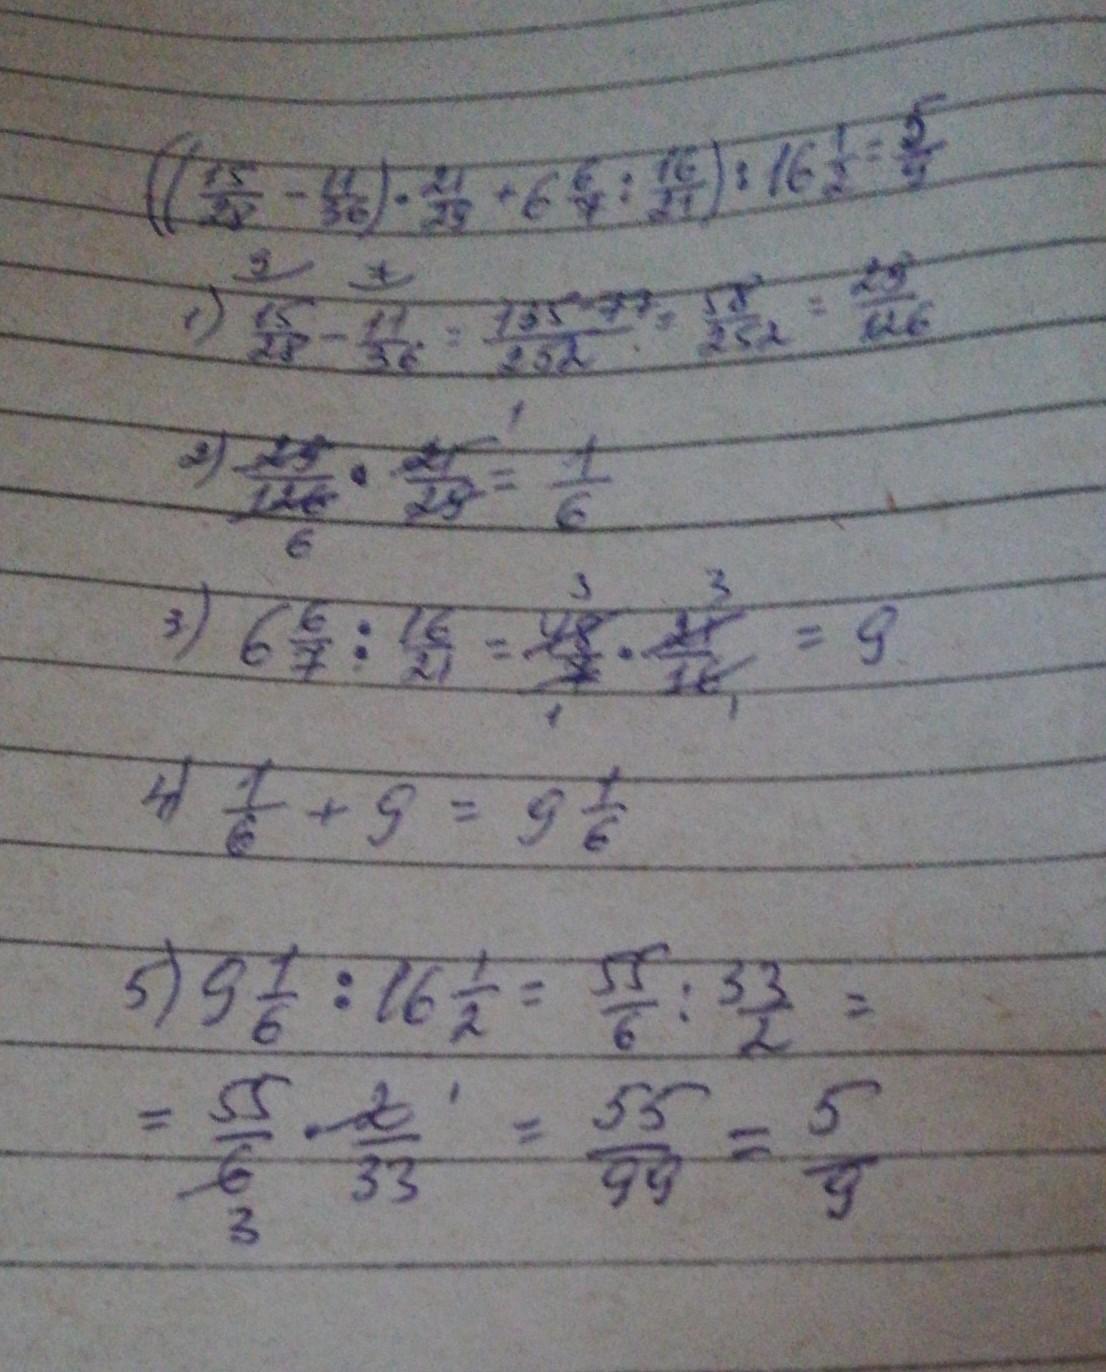 ((15/28 - 11/36) · 21/29 + 6 6/7 : 16/21) : 16 1/2 = 5/9
9 7
1) 15/28 - 11/36 = 135-77/252 = 58/252 = 29/126
1
2) 29/126 · 21/29 = 1/6
6
3 3
3) 6 6/7 : 16/21 = 48/7 · 21/16 = 9
1 1
4) 1/6 + 9 = 9 1/6
5) 9 1/6 : 16 1/2 = 55/6 : 33/2 =
= 55/6 · 2/33 1 = 55/99 = 5/9
3